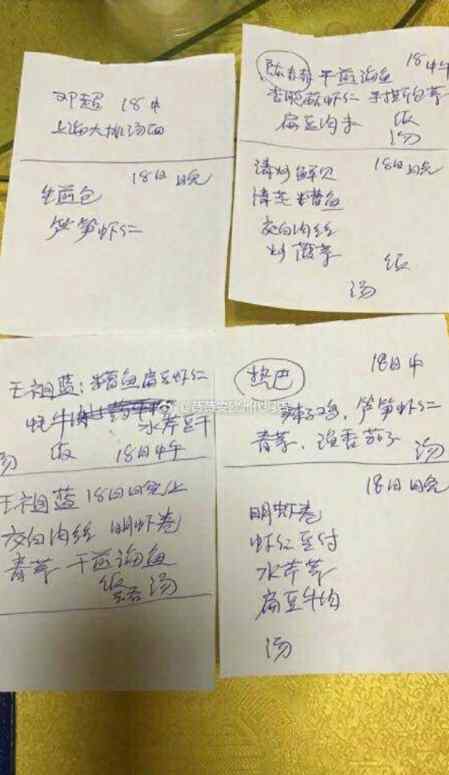 邓超 18中
上海大排汤面
18日晚
生煎包
芦笋虾仁
陈赫 干煎海鱼 18中午
虾仁
扁豆肉末 饭
汤
清炒鲜贝 18日晚
清蒸 鱼
茭白肉丝
炒菠菜 饭
汤
王祖蓝: 鱼 扁豆虾仁
水芹豆干
汤 饭 18日中午
王祖蓝 18日晚上
茭白肉丝 明虾卷
青菜 干煎海鱼
饭 汤
热巴 18日中
辣子鸡, 芦笋虾仁
青菜, 鱼香茄子 汤
18日晚
明虾卷
虾仁豆付
水芹菜
扁豆牛肉
汤